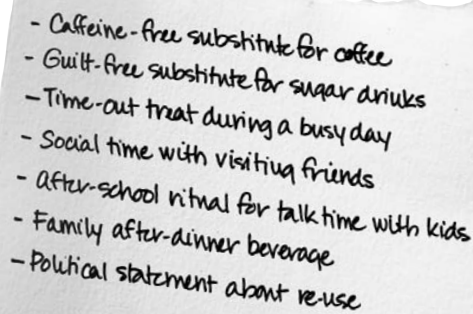 - Caffeine-free substitute for coffee
- Guilt-free substitute for sugar drinks
- Time-out treat during a busy day
- Social time with visiting friends
- After-school ritual for talk time with kids
- Family after-dinner beverage
- Political statement about re-use